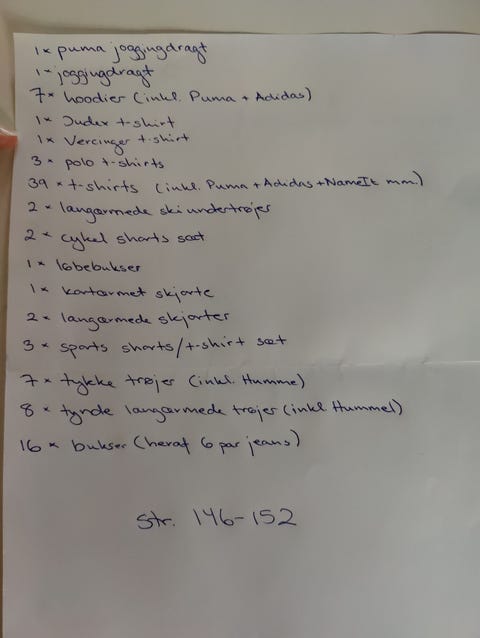 1 × puma joggingdragt
1 × joggingdragt
7 × hoodier (inkl. Puma + Adidas)
1 × Judex t-shirt
1 × Vercinger t-shirt
3 × polo t-shirts
39 × t-shirts (inkl. Puma + Adidas + NameIt mm.)
2 × langærmede ski undertrøjer
2 × cykel shorts sæt
1 × løbebukser
1 × kortærmet skjorte
2 × langærmede skjorter
3 × sports shorts/t-shirt sæt
7 × tykke trøjer (inkl. Humme)
8 × tynde langærmede trøjer (inkl. Hummel)
16 × bukser (heraf 6 par jeans)
str. 146-152